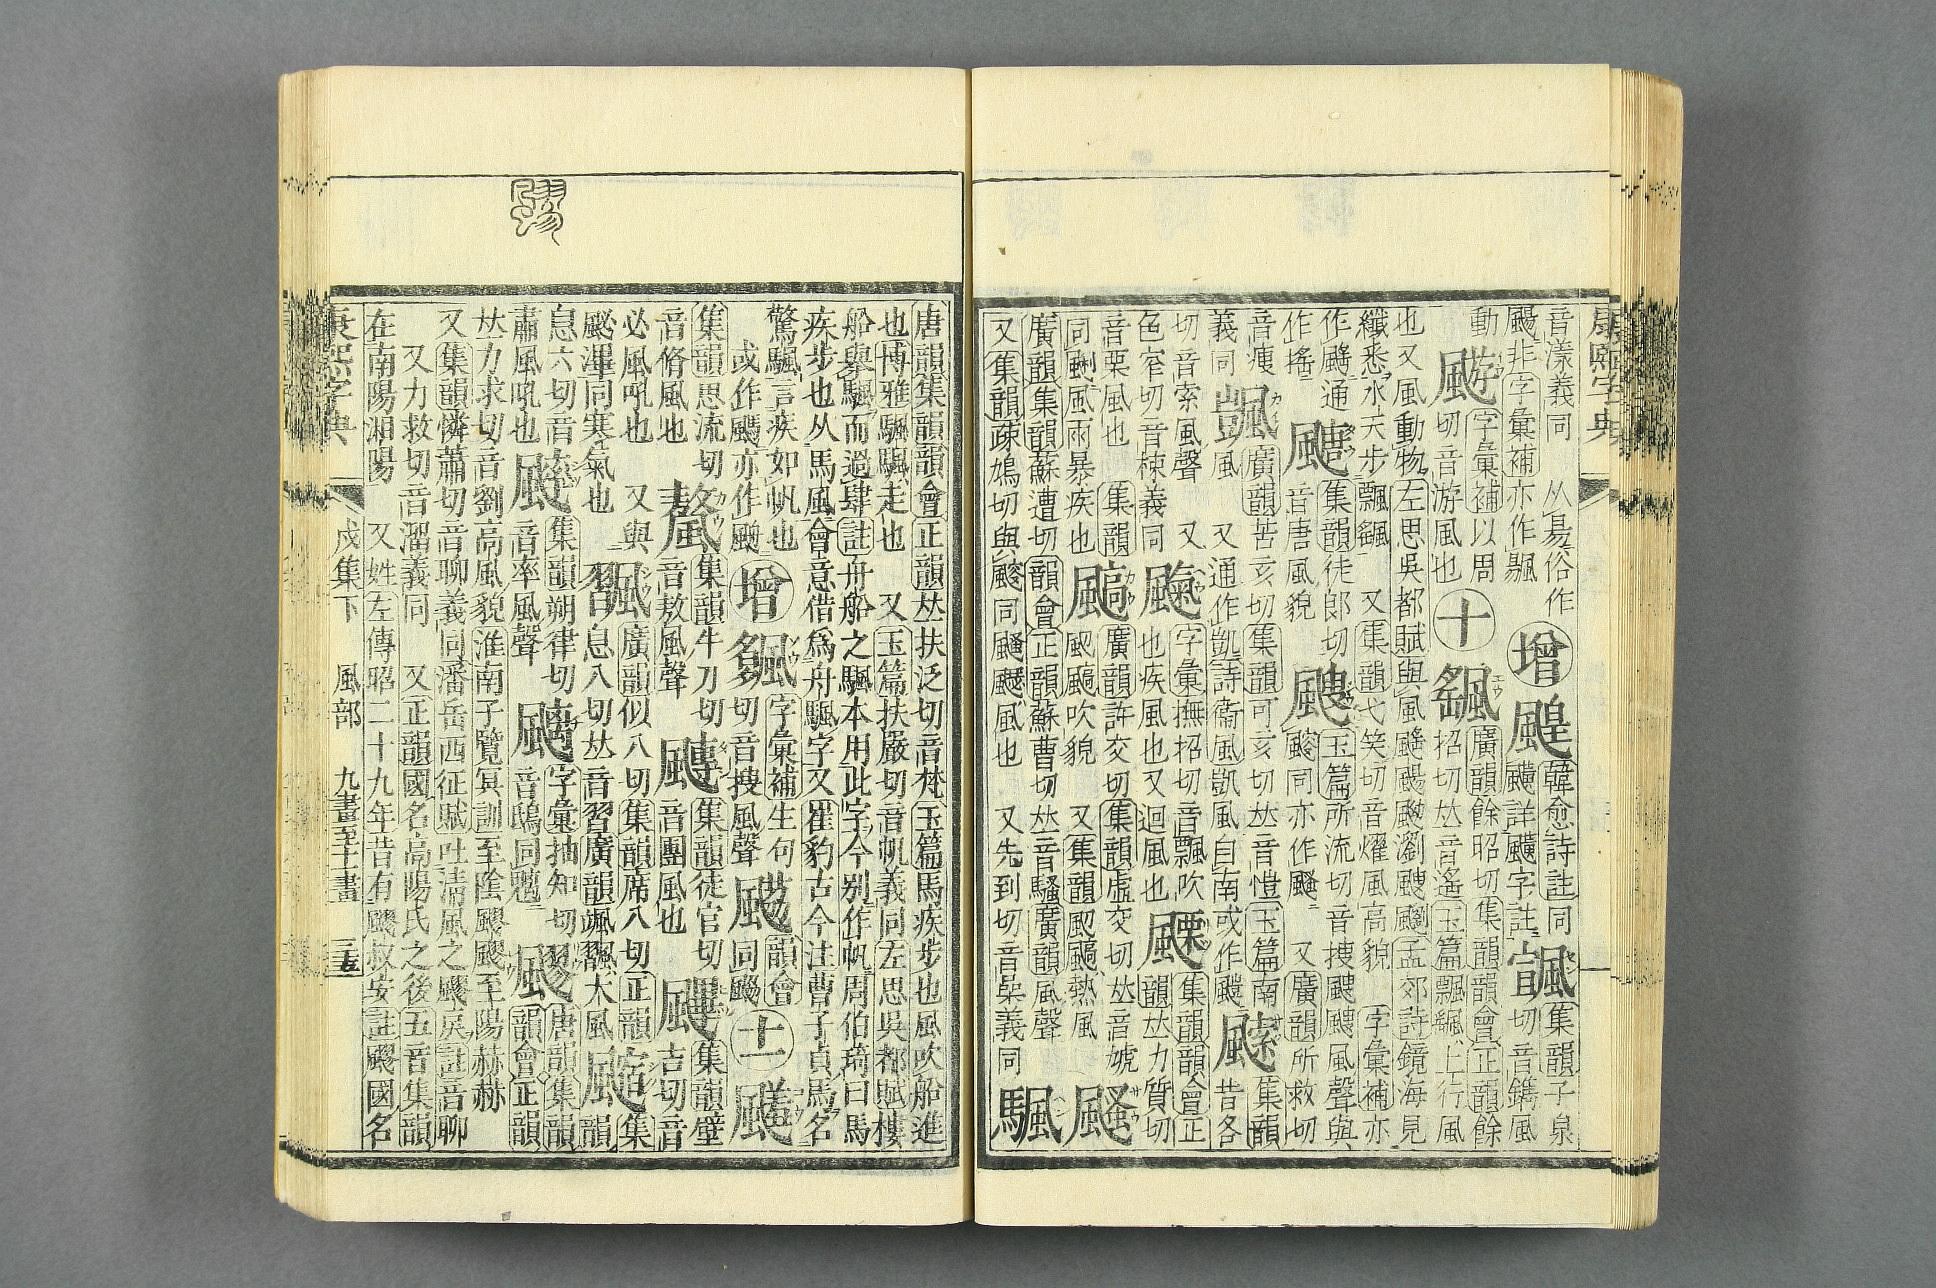 康熙字典
音漾義同 从昜俗作 增䬖韓愈詩註同颺詳颺字註 颽集韻子泉切音鐫風
颺非字彙補亦作飁
動 䬀字彙補以周切音游風也 十 颻廣韻餘昭切集韻韻會正韻餘招切𠀤音遙玉篇飄颻上行風
也又風動物左思吳都賦與風䬙颺颼瀏颼飀孟郊詩鏡海見
纖悉水天步飄颻 又集韻弋笑切音燿風高貌 字彙補亦
作䬙通作搖 颹集韻徒郎切音唐風貌 颼玉篇所流切音搜颼颼風聲與
䬒同亦作颾 又廣韻所救切音瘦
義同 颽廣韻苦亥切集韻可亥切𠀤音愷玉篇南風 又通作凱詩衛風凱風自南或作颽 集韻昔各
切音索風聲 又色窄切音棟義同 字彙撫招切音飄吹也疾風也又迴風也 颲集韻韻會正韻𠀤力質切
音栗風也 廣韻許交切集韻虛交切𠀤音虓
同颲風雨暴疾也 吹貌 又集韻熱風 颾
廣韻集韻蘇遭切韻會正韻蘇曹切𠀤音騷廣韻風聲
又集韻疎鳩切與颼同颾颾風也 又先到切音喿義同 颿
唐韻集韻韻會正韻𠀤扶泛切音梵玉篇馬疾步也風吹船進
也博雅颿颿走也 又玉篇扶嚴切音帆義同左思吳都賦樓
船舉颿而過肆註舟船之颿本用此字今別作帆周伯琦曰馬
疾步也从馬風會意借爲舟颿字又崔豹古今注曹子真馬名
驚颿言疾如帆也 增 字彙補生句切音捜風聲 韻會同飈 十一
集韻思流切音脩風也 集韻牛刀切音敖風聲 集韻徒官切音團風也 集韻壁吉切音
必風吼也 又與 廣韻似入切集韻席入切正韻息入切𠀤音習廣韻颯飁大風 集韻
息六切音肅風吼也 集韻朔律切音率風聲 字彙抽知切音鴟同魑 飂唐韻集韻韻會正韻
𠀤力求切音劉高風貌淮南子覽冥訓至陰飂飂至陽赫赫
又集韻憐蕭切音聊義同潘岳西征賦吐淸風之飂戾註音聊
又力救切音溜義同 又正韻國名高陽氏之後五音集韻
在南陽湘陽 又姓左傳昭二十九年昔有飂叔安註飂國名
康熙字典 戌集下 風部 九畫至十一畫 三五